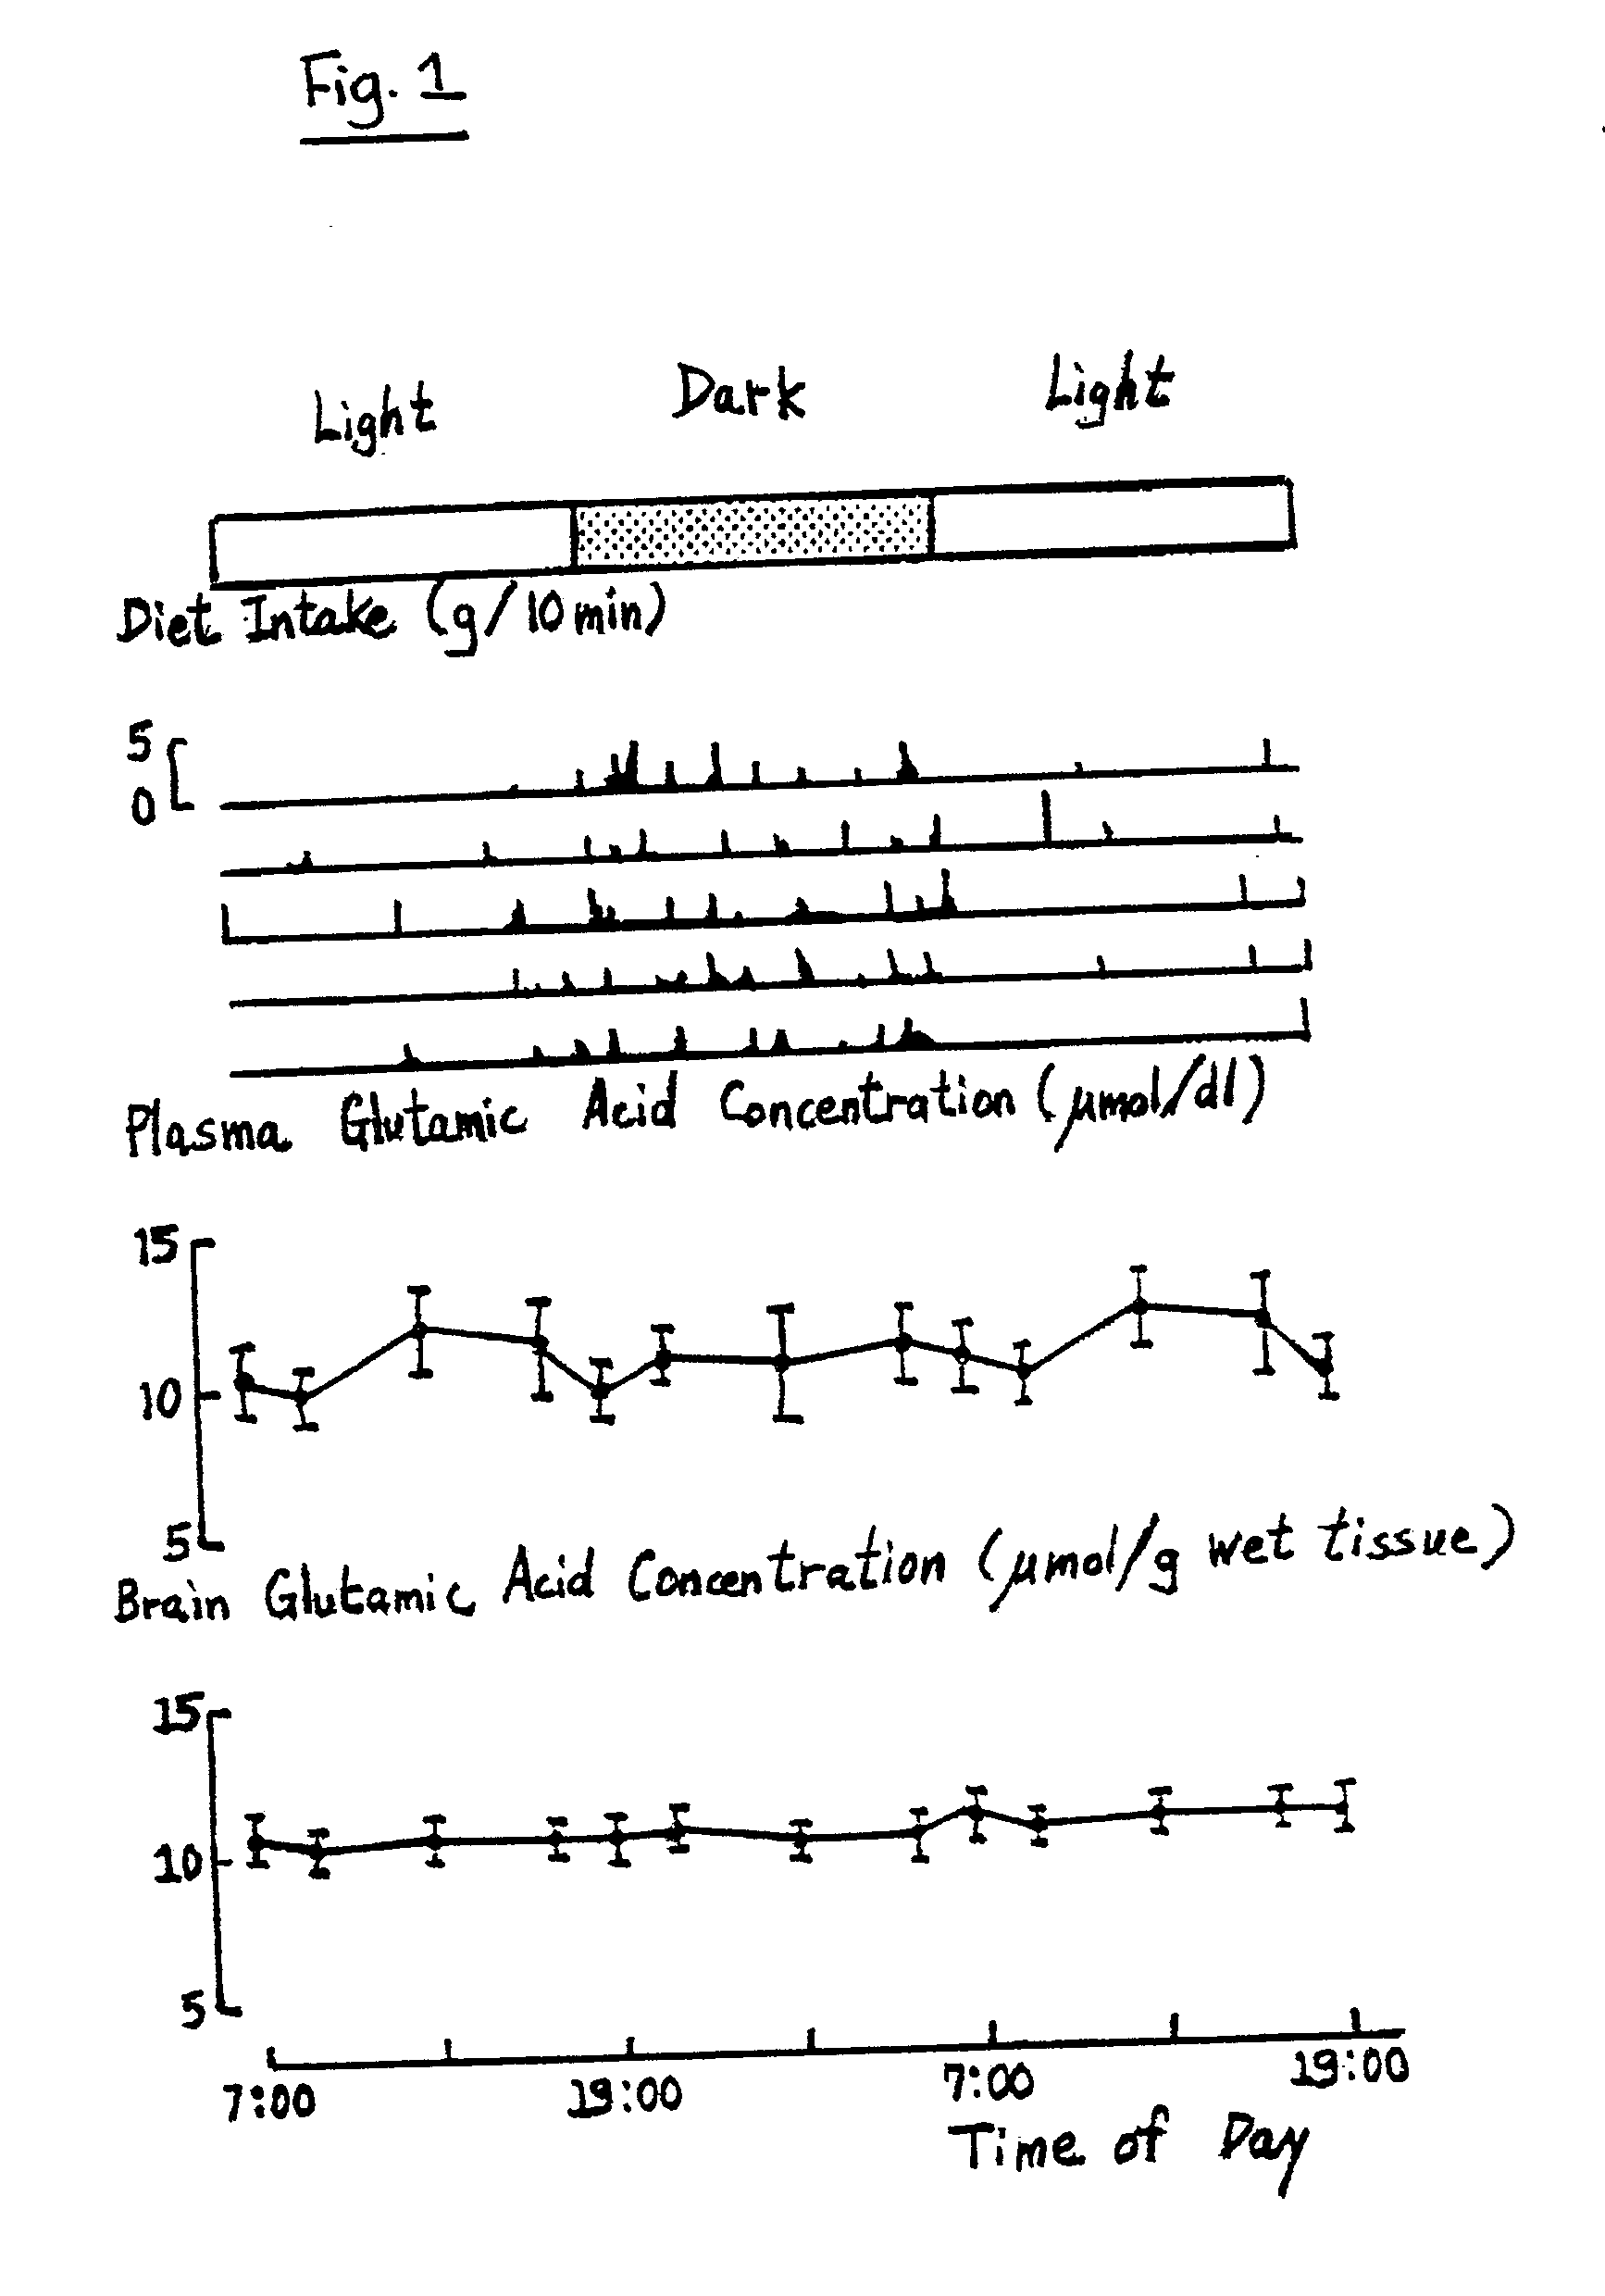 Fig. 1
Light Dark Light
Diet Intake (g/10min)
5
0
Plasma Glutamic Acid Concentration (μmol/dl)
15
10
5
Brain Glutamic Acid Concentration (μmol/g wet tissue)
15
10
5
7:00 19:00 7:00 19:00
Time of Day